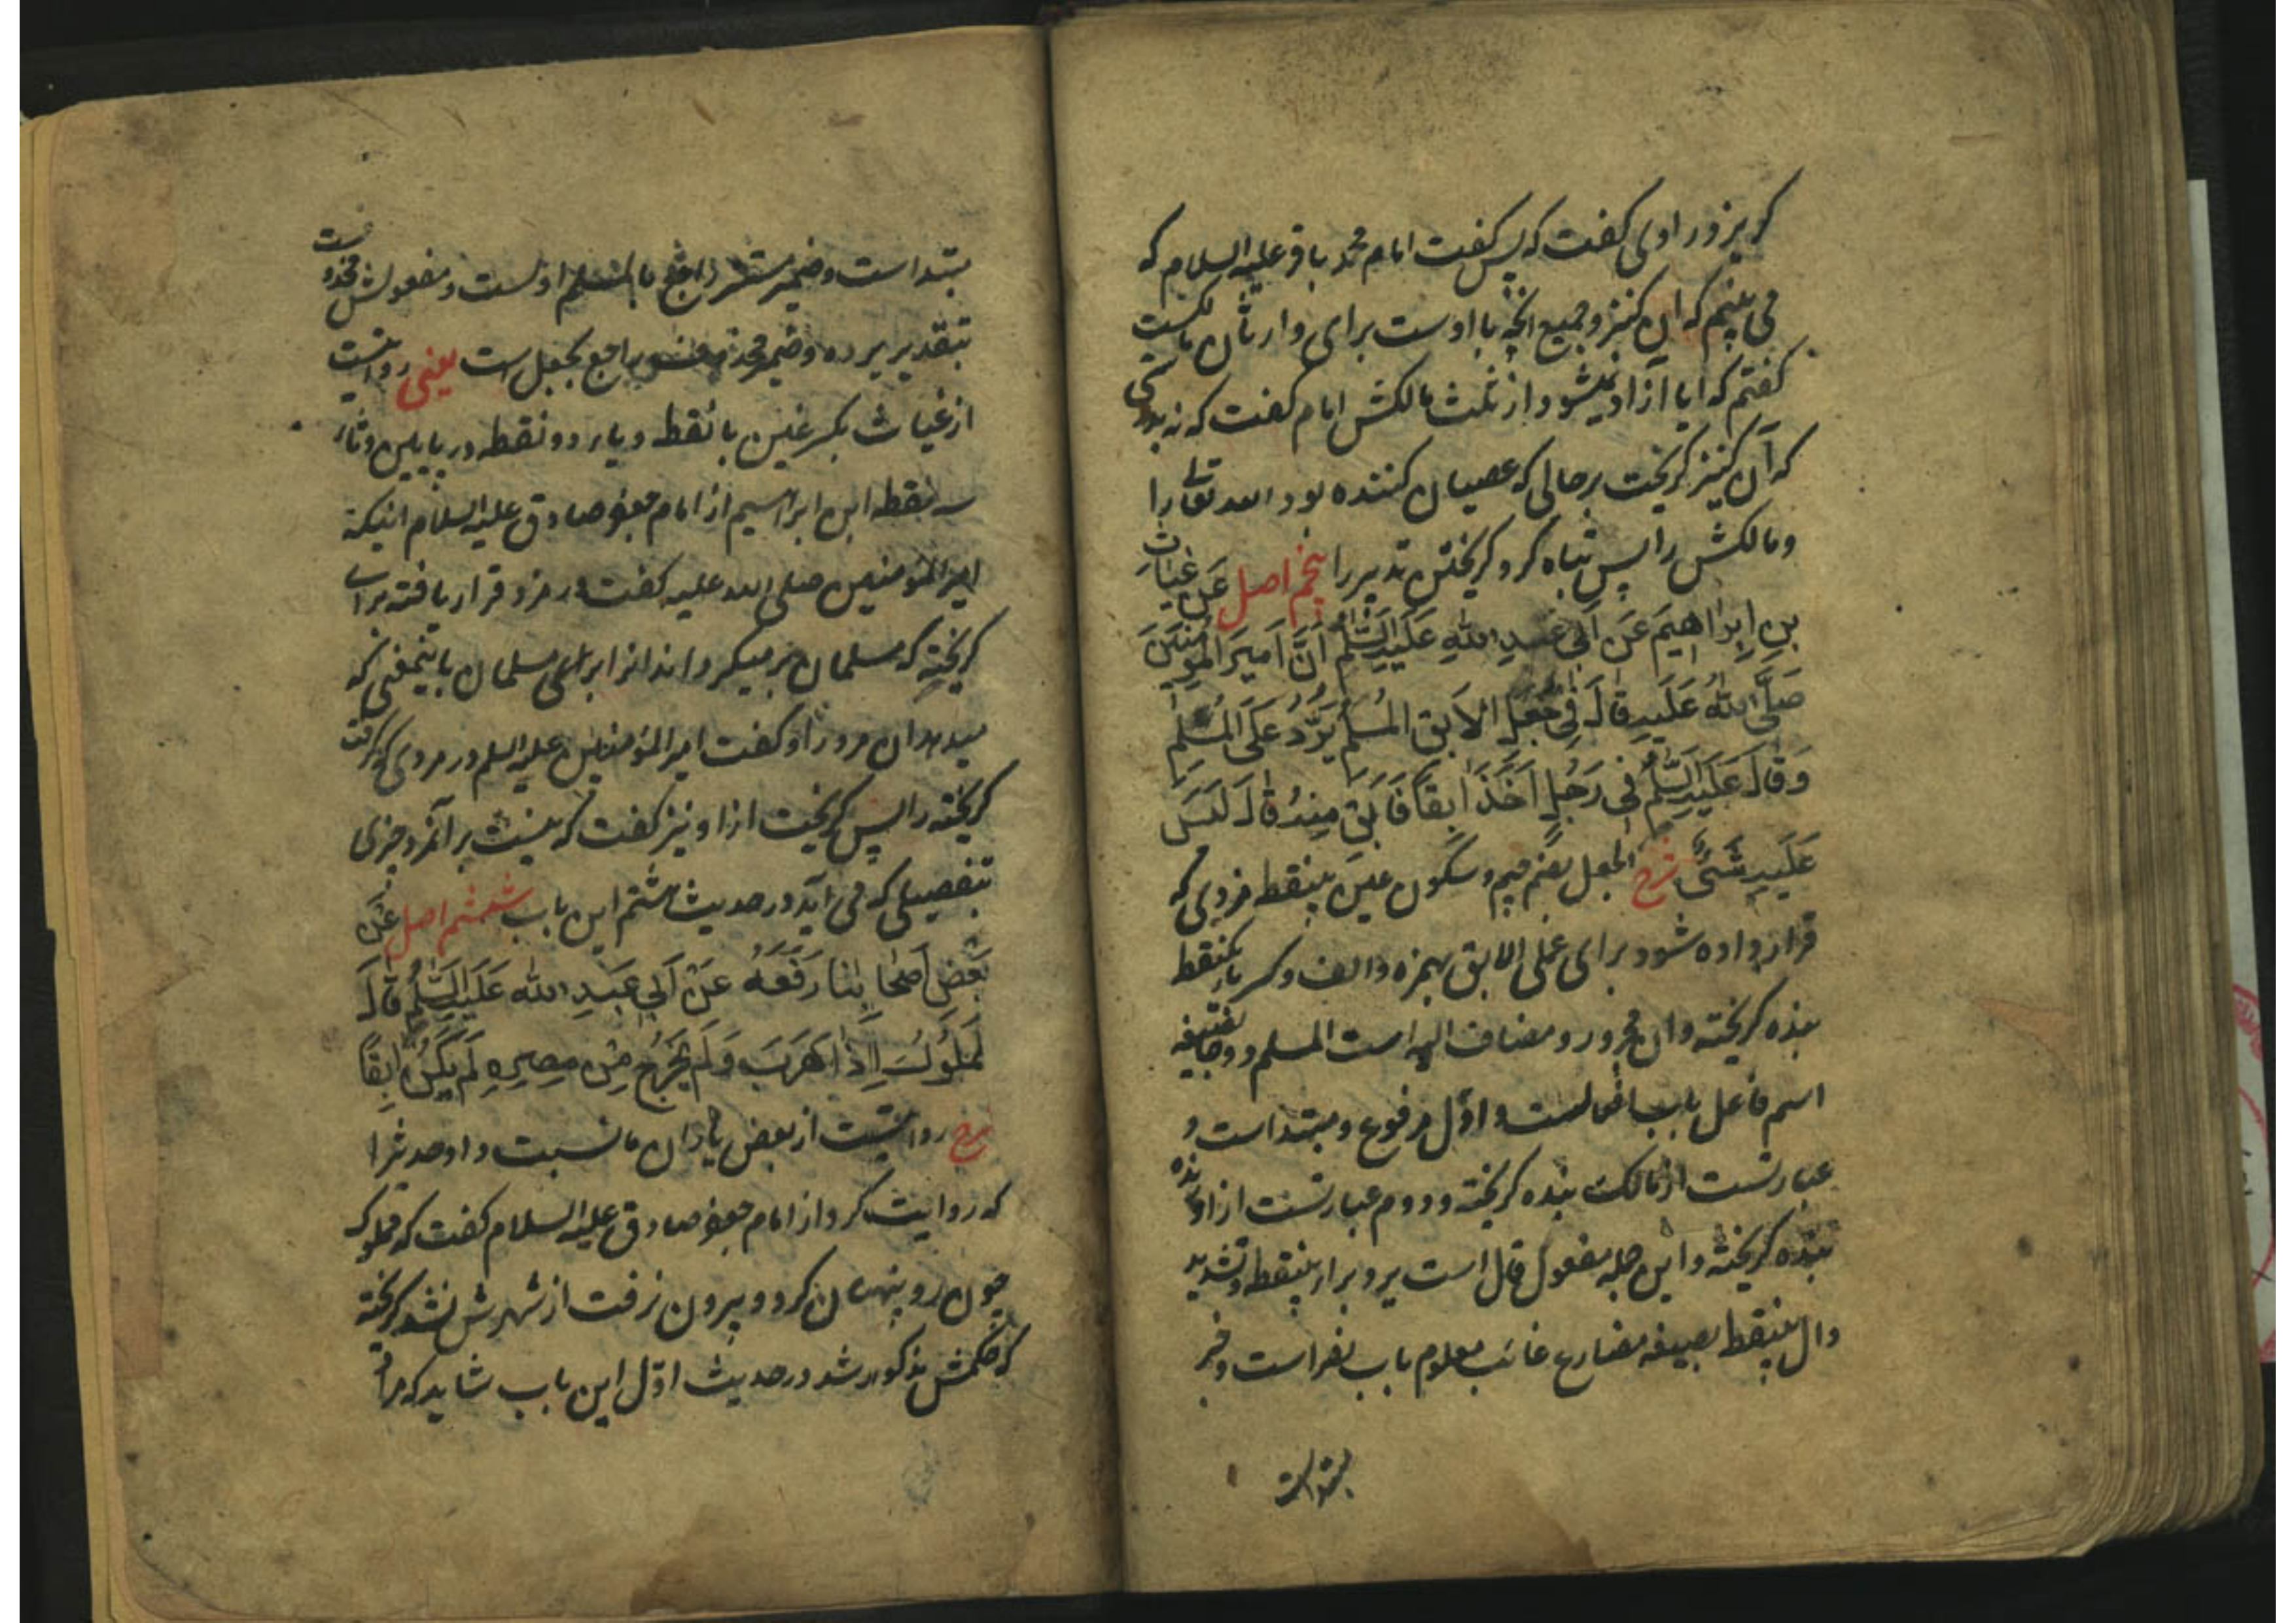 كو بزور اوى كفت كه پس كفت امام محمد باقر عليه السلام كه
مى بينم كه آن كنيز و جميع آنچه با اوست براى وارثان مالكست
كفتم كه ايا آزاد نميشود از ثلث مالكش امام كفت كه نه بدرستى
كه آن كنيز كريخت برحالى كه عصيان كننده بود الله تعالى را
و مالكش را پس تباه كرد كريختن تدبير را پنجم اصل عَن غياث
بنِ اِبراهيمَ عَن اَبى عَبدِ اللهِ عَلَيهِ السَّلمُ اَنَّ اَميرَ المُؤمِنينَ
صَلَّى اللهُ عَلَيهِ قالَ فى جُعلِ الآبقِ المُسلِمُ يَرُدُّ عَلَى المُسلِمِ
وَقالَ عَلَيهِ السَّلمُ فى رَجُلٍ اَخَذَ آبِقاً فَاَبَقَ مِنهُ قالَ لَيسَ
عَلَيهِ شَىءٌ شرح الجعل بضم جيم و سكون عين بينقطه مزدى كه
قرار داده شود براى عملى الآبق بهمزه و الف و كسر باء يكنقطه
بنده كريخته و آن مجرور و مضاف اليه است المسلم دوجا بصيغه
اسم فاعل باب افعالست و اوّل مرفوع و مبتداست و
عبارتست از مالك بنده كريخته و دوم عبارتست از
بنده كريخته و اين جمله مفعول قال است يرد براء بينقطه و تشديد
دال بينقطه بصيغه مضارع غائب معلوم باب نصر است و خبر
مبتداست
مبتداست و ضمير مستتر راجع بالمسلم اولست و مفعولش محذوفست
بتقدير يرده و ضمير محذوف راجع بجعل است يعنى روايتست
از غياث بكسر غين با نقطه و ياء دو نقطه در پايين و ثاء
سه نقطه ابن ابراهيم از امام جعفر صادق عليه السلام اينكه
امير المؤمنين صلى الله عليه كفت در مزد قرار يافته براى
كريخته كه مسلمان برميكرداند آنرا براى مسلمان باينمعنى كه
ميدهد آن مزد را و كفت امير المؤمنين عليه السلم در مردى كه كرفت
كريخته را پس كريخت از او نيز كفت كه نيست بر آنمرد چيزى
بتفصيلى كه مى آيد در حديث هشتم اين باب ششم اصل عَن
بَعضِ اَصحابِنا رَفَعَهُ عَن اَبى عَبدِ اللهِ عَلَيهِ السَّلمُ قالَ
المَملُوكُ اِذا هَرَبَ وَلَم يَخرُج مِن مِصرِهِ لَم يَكُن آبِقاً
شرح روايتست از بعض ياران ما نسبت داد حديث را
كه روايت كرد از امام جعفر صادق عليه السلام كفت كه مملوك
چون رو پنهان كرد و بيرون نرفت از شهرش نشد كريخته
كه حكمش مذكور شد در حديث اوّل اين باب شايد كه مراد